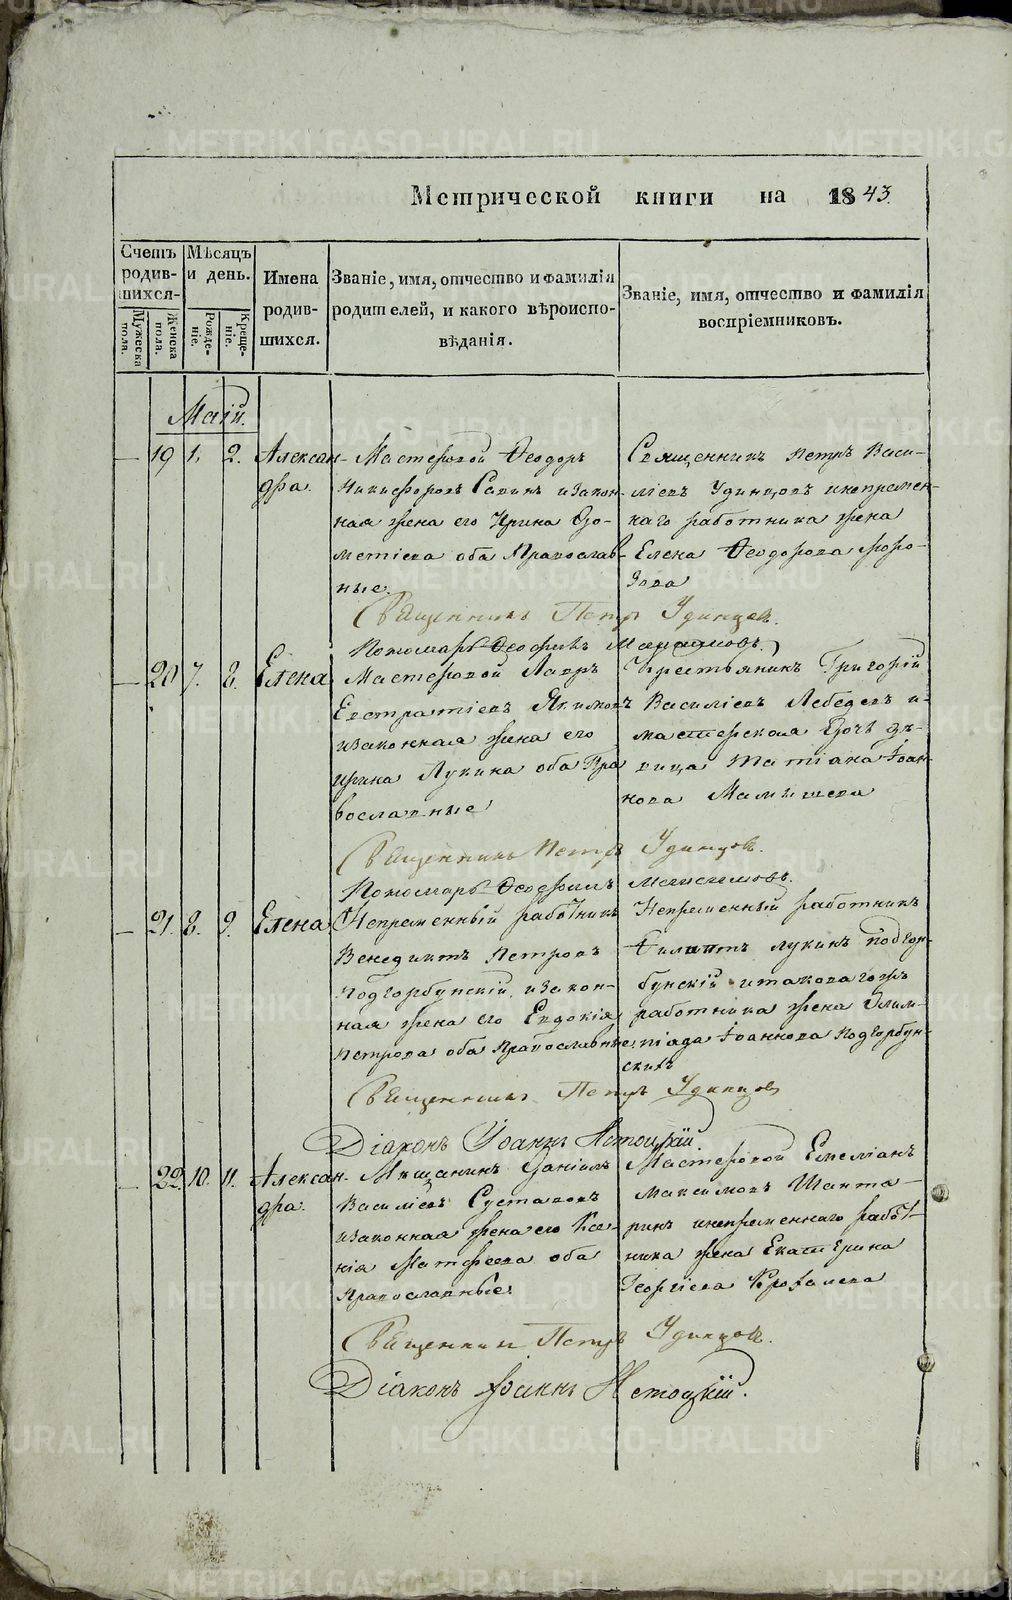 Метрической книги на 1843.
Счетъ родив-шихся.
Мѣсяцъ и день.
Имена родив-шихся.
Званіе, имя, отчество и фамилія родителей, и какого вѣроиспо-вѣданія.
Званіе, имя, отчество и фамилія воспріемниковъ.
Мужеска пола.
Женска пола.
Рожде-ніе.
Креще-ніе.
Маій.
— 19 1. 2. Алексан-
дра.
Мастеровой Ѳеодоръ
Никифоровъ Савинъ и закон-
ная жена его Ирина До-
метіева оба Православ-
ные.
Священникъ Петръ Васи-
ліевъ Удинцовъ и непремен-
наго работника жена
Елена Ѳеодорова
Священникъ Петръ Удинцов.
Пономарь Ѳеофилъ
— 20 7. 8. Елена
Мастеровой Лавръ
Евстратіевъ Якимовъ
и законная жена его
Ирина Лукина оба Пра
вославные
Крестьянинъ Григорій
Василіевъ Лебедевъ и
мастерская дочь дѣ-
вица Татіана Іоан-
нова Малышева
Священникъ Петръ Удинцов.
Пономарь Ѳеофилъ
— 21. 8. 9. Елена
Непременный работникъ
Венедиктъ Петровъ
Подгорбунскій и закон-
ная жена его Евдокія
Петрова оба Православные
Непременный работникъ
Филиппъ Лукинъ Подгор-
бунскій и таковагожъ
работника жена Олим-
піада Іоаннова Подгорбун-
скихъ
Священникъ Петръ Удинцов
Діаконъ Іоаннъ Истоцкій
— 22. 10. 11. Алексан-
дра.
Мещанинъ Даніилъ
Василіевъ Суставовъ
и законная жена его Ксе-
нія Матфеева оба
Православные
Мастеровой Емеліанъ
Максимовъ Шанта-
ринъ и непременнаго работ-
ника жена Екатерина
Георгіева Крохалева
Священник Петръ Удинцов.
Діаконъ Іоаннъ Истоцкій.
METRIKI.GASO-URAL.RU